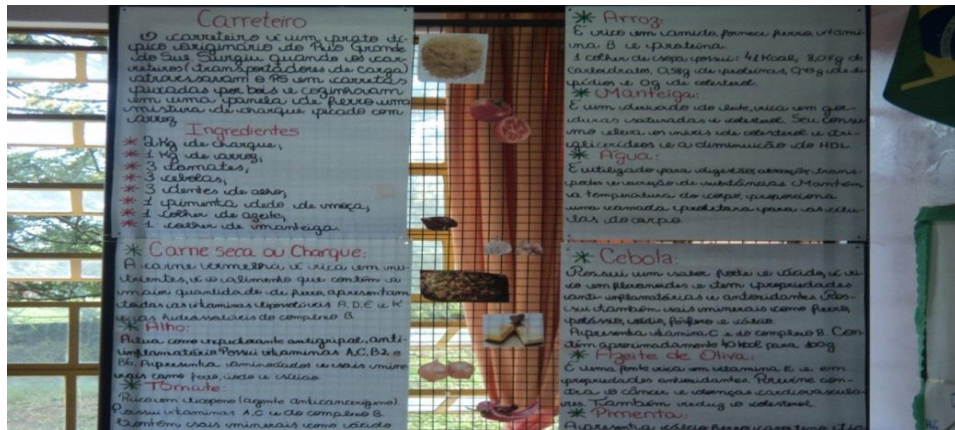 Carreteiro
O carreteiro é um prato tí-
pico originário do Rio Grande
do Sul. Surgiu quando os car-
reteiros (transportadores de carga)
atravessavam o RS em carretas
puxadas por bois e cozinhavam
em uma panela de ferro uma
mistura de charque picado com
arroz
Ingredientes
* 2 Kg de charque;
* 1 Kg de arroz;
* 3 tomates;
* 3 cebolas;
* 3 dentes de alho;
* 1 pimenta dedo de moça;
* 1 colher de azeite;
* 1 colher de manteiga.
* Carne seca ou Charque:
A carne vermelha, é rica em nu-
trientes, é o alimento que contém a
maior quantidade de ferro, apresentam
todas as vitaminas lipossolúveis A, D, E e K
e as hidrossolúveis do complexo B.
* Alho:
Atua como expectorante antigripal, anti-
inflamatório. Possui vitaminas A, C, B2 e
B6. Apresenta aminoácidos e sais mine-
rais como ferro, iodo e
* Tomate:
Rico em licopeno (agente anticancerígeno).
Possui vitaminas A, C e do complexo B.
Contém sais minerais como ácido
* Arroz
É rico em amido, fornece ferro, vitami-
na B e proteína.
1 colher de sopa possui: 41 Kcal;
carboidrato, de proteínas, de li-
pídios e 0g de colesterol.
* Manteiga:
É um derivado do leite, rica em gor-
duras saturadas e colesterol. Seu consu-
mo eleva os níveis de colesterol e tri-
glicerídeos e a diminuição do HDL.
* Água:
É utilizado para digestão, absorção, trans-
porte e excreção de substâncias. Mantém
a temperatura do corpo, proporciona
uma camada protetora para as célu-
las do corpo.
* Cebola:
Possui um sabor forte e ácido, é ri-
co em flavonoides e tem propriedades
anti-inflamatórias e antioxidantes. Pos-
sui também sais minerais como ferro,
potássio, sódio, fósforo e cálcio.
Apresenta vitamina C e do complexo B. Con-
tém aproximadamente 40 kcal para 100g.
* Azeite de Oliva:
É uma fonte rica em vitamina E e em
propriedades antioxidantes. Previne con-
tra o câncer e doenças cardiovascula-
res. Também reduz o colesterol.
* Pimenta:
Apresenta cálcio, ferro,